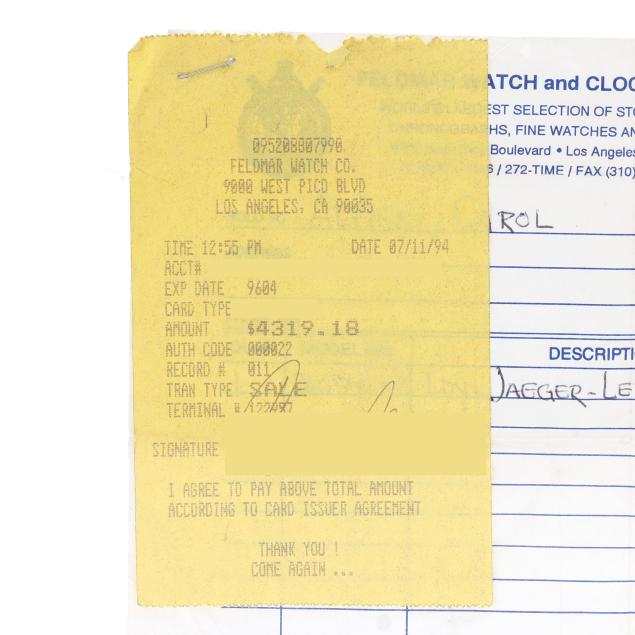 ATCH and CLOC
EST SELECTION OF STO
HS, FINE WATCHES AN
Boulevard • Los Angeles
6 / 272-TIME / FAX (310)
ROL
DESCRIPTI
JAEGER-LE
095208807990
FELDMAR WATCH CO.
9000 WEST PICO BLVD
LOS ANGELES, CA 90035
TIME 12:55 PM DATE 07/11/94
ACCT#
EXP DATE 9604
CARD TYPE
AMOUNT $4319.18
AUTH CODE 000022
RECORD # 011
TRAN TYPE SALE
TERMINAL #
SIGNATURE
I AGREE TO PAY ABOVE TOTAL AMOUNT
ACCORDING TO CARD ISSUER AGREEMENT
THANK YOU !
COME AGAIN ...